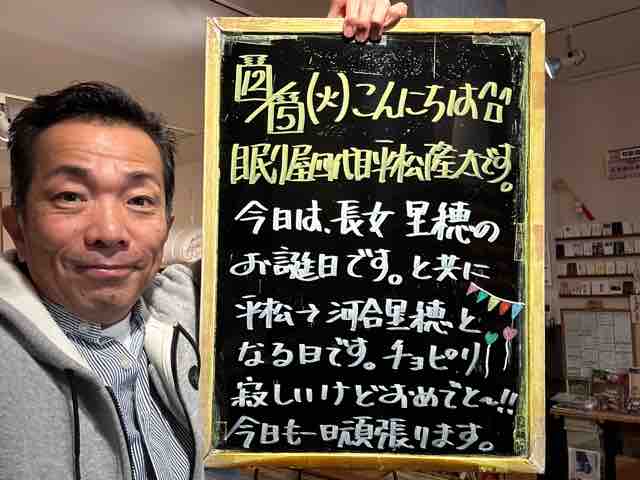 12/5(火)こんにちは^^
眠り屋四代目平松隆太です。
今日は、長女 里穂の
お誕日です。と共に
平松→河合里穂と
なる日です。チョピリ
寂しいけどおめでと〜!!
今日も一日頑張ります。